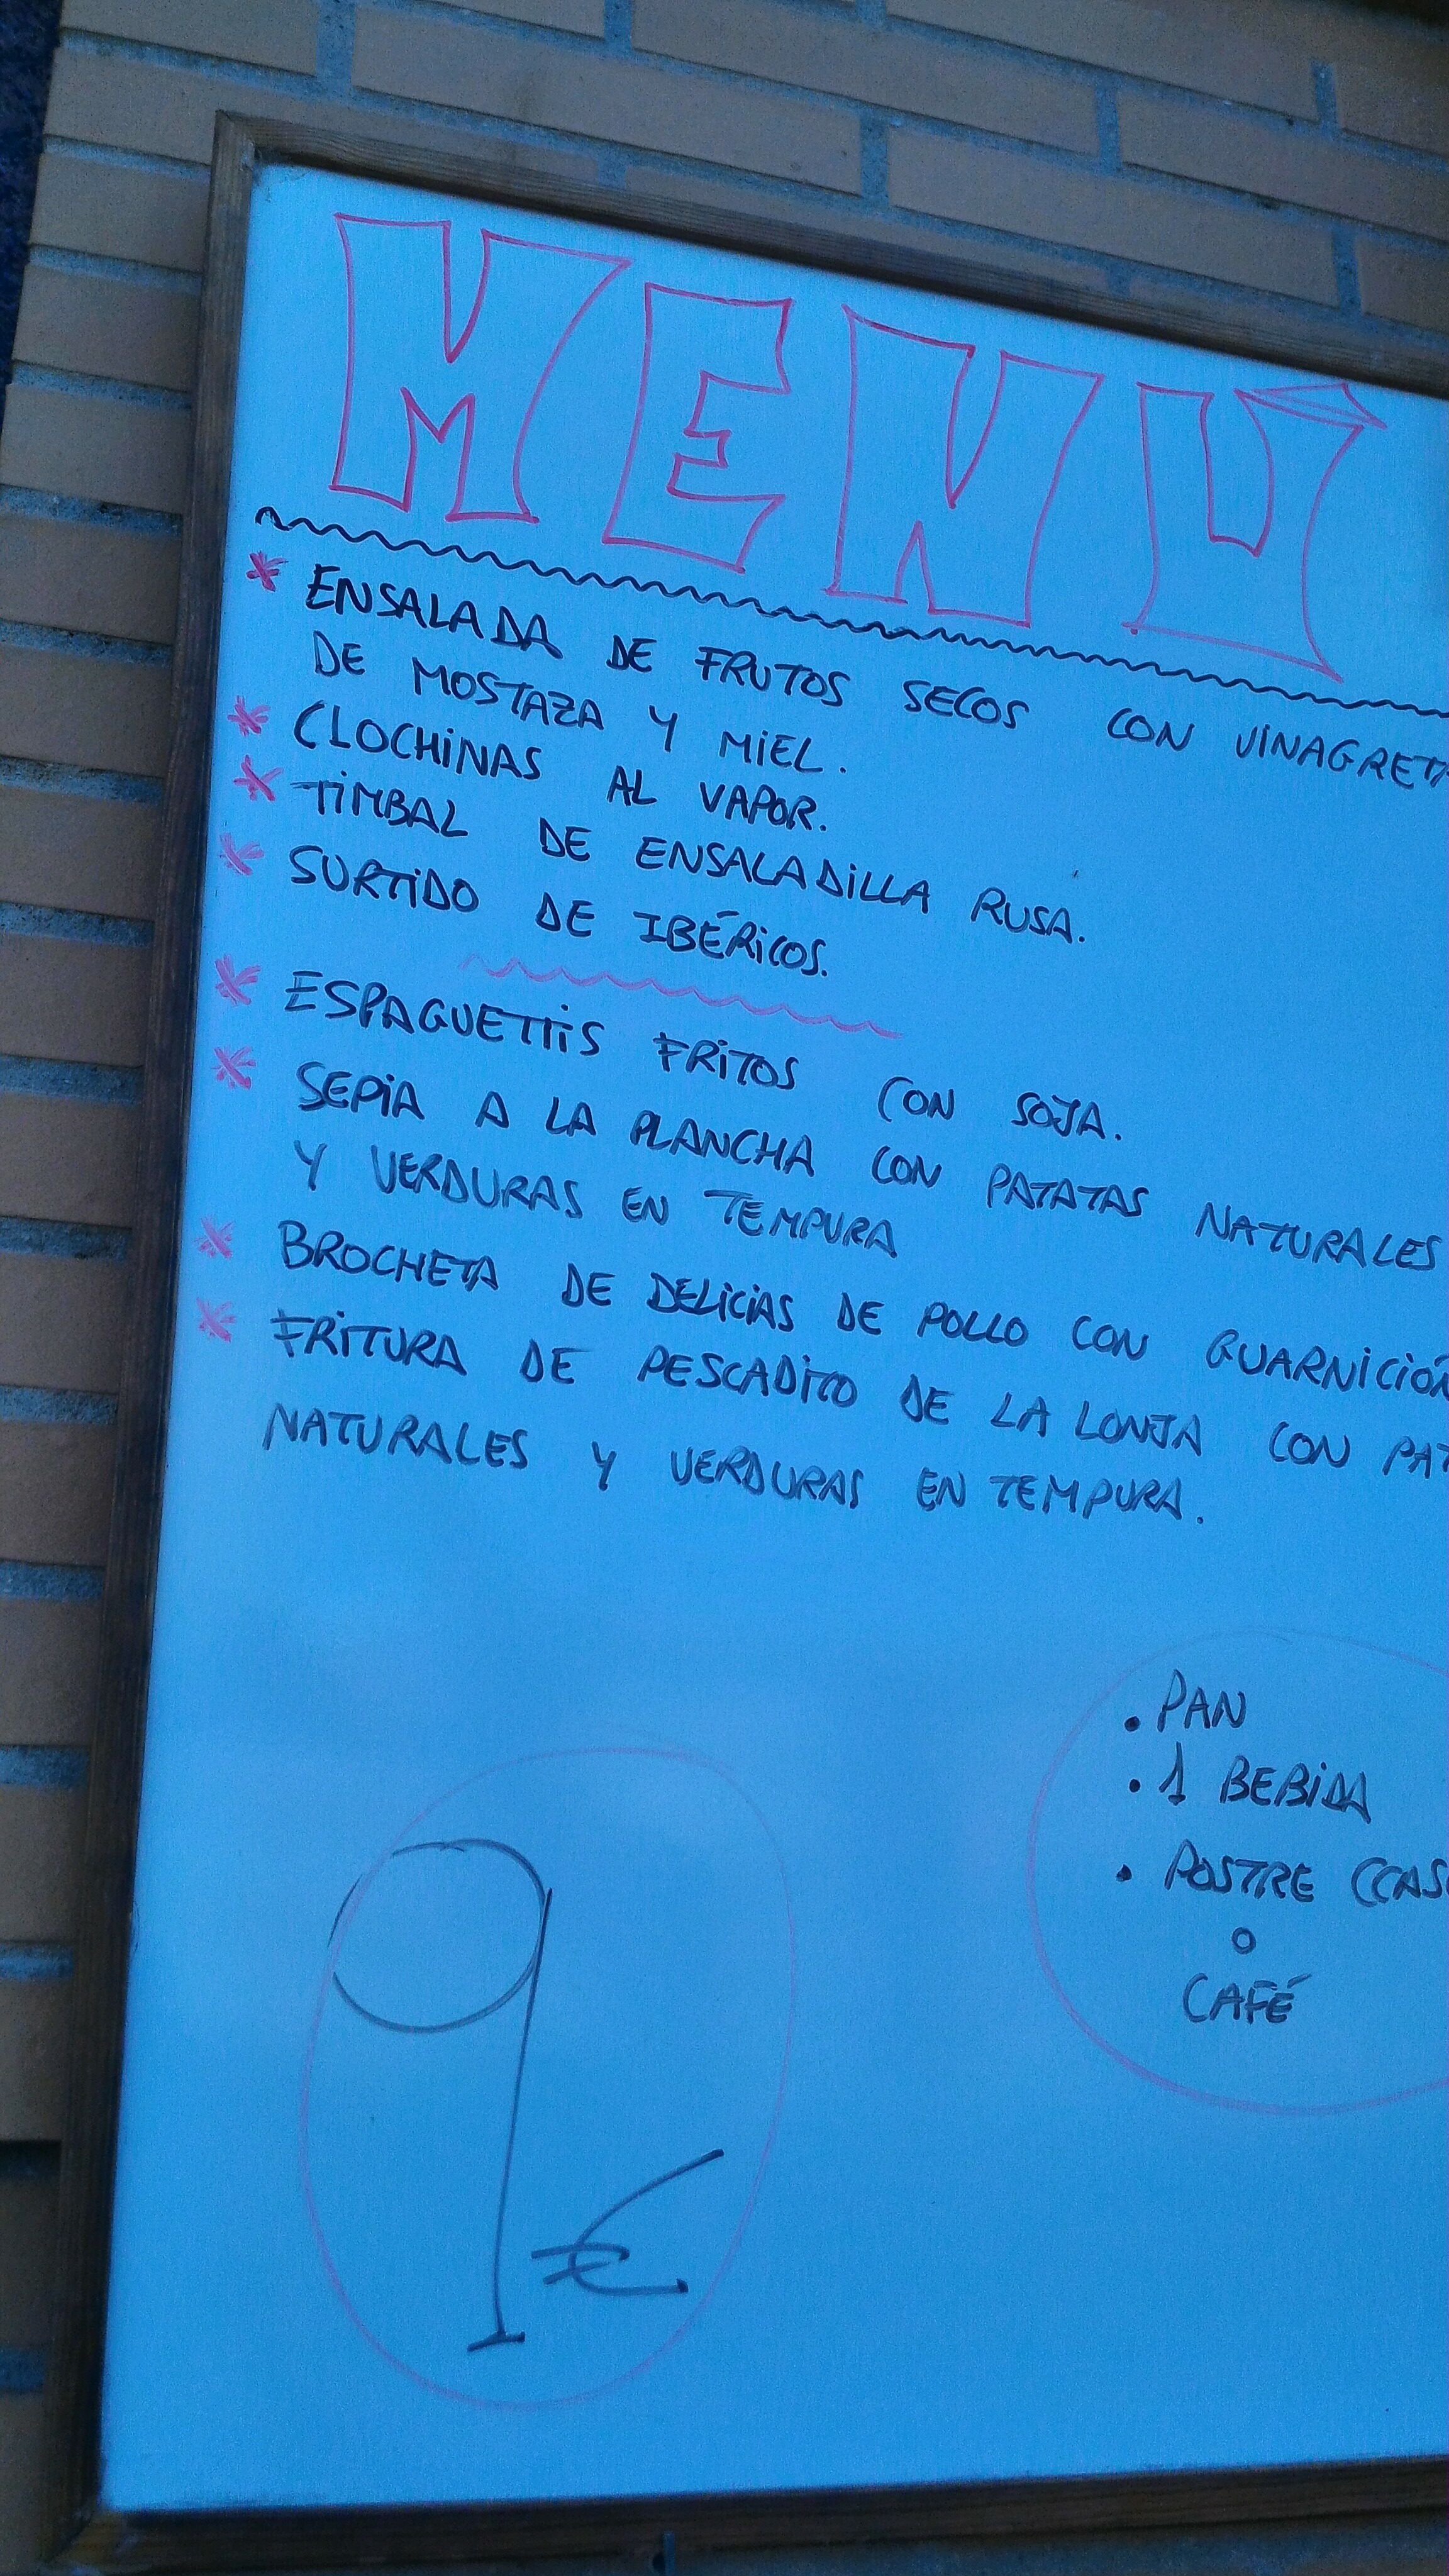 MENÚ
* ENSALADA DE FRUTOS SECOS CON VINAGRET
DE MOSTAZA Y MIEL.
* CLOCHINAS AL VAPOR.
* TIMBAL DE ENSALADILLA RUSA.
* SURTIDO DE IBÉRICOS.
* ESPAGUETTIS FRITOS CON SOJA.
* SEPIA A LA PLANCHA CON PATATAS NATURALES
Y VERDURAS EN TEMPURA
* BROCHETA DE DELICIAS DE POLLO CON GUARNICIÓN
* FRITURA DE PESCADITO DE LA LONJA CON PAT
NATURALES Y VERDURAS EN TEMPURA.
. PAN
. 1 BEBIDA
. POSTRE (CAS
O
CAFÉ
9€